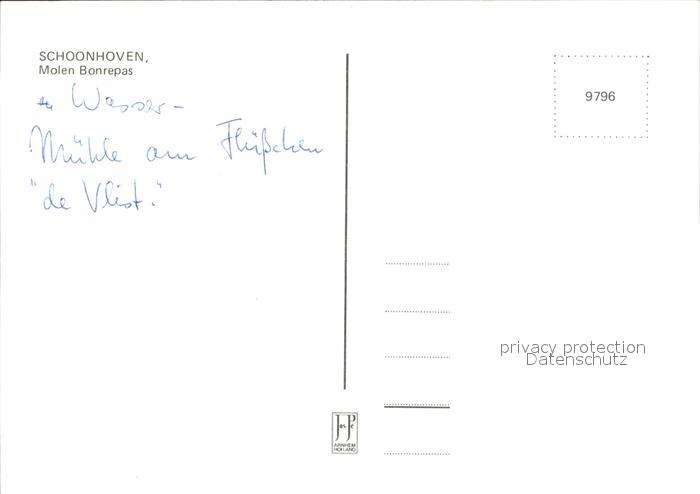 SCHOONHOVEN,
Molen Bonrepas
Wasser-
Mühle am Flüßchen
"de Vlist."
9796
privacy protection
Datenschutz
JosPé
ARNHEM
HOLLAND